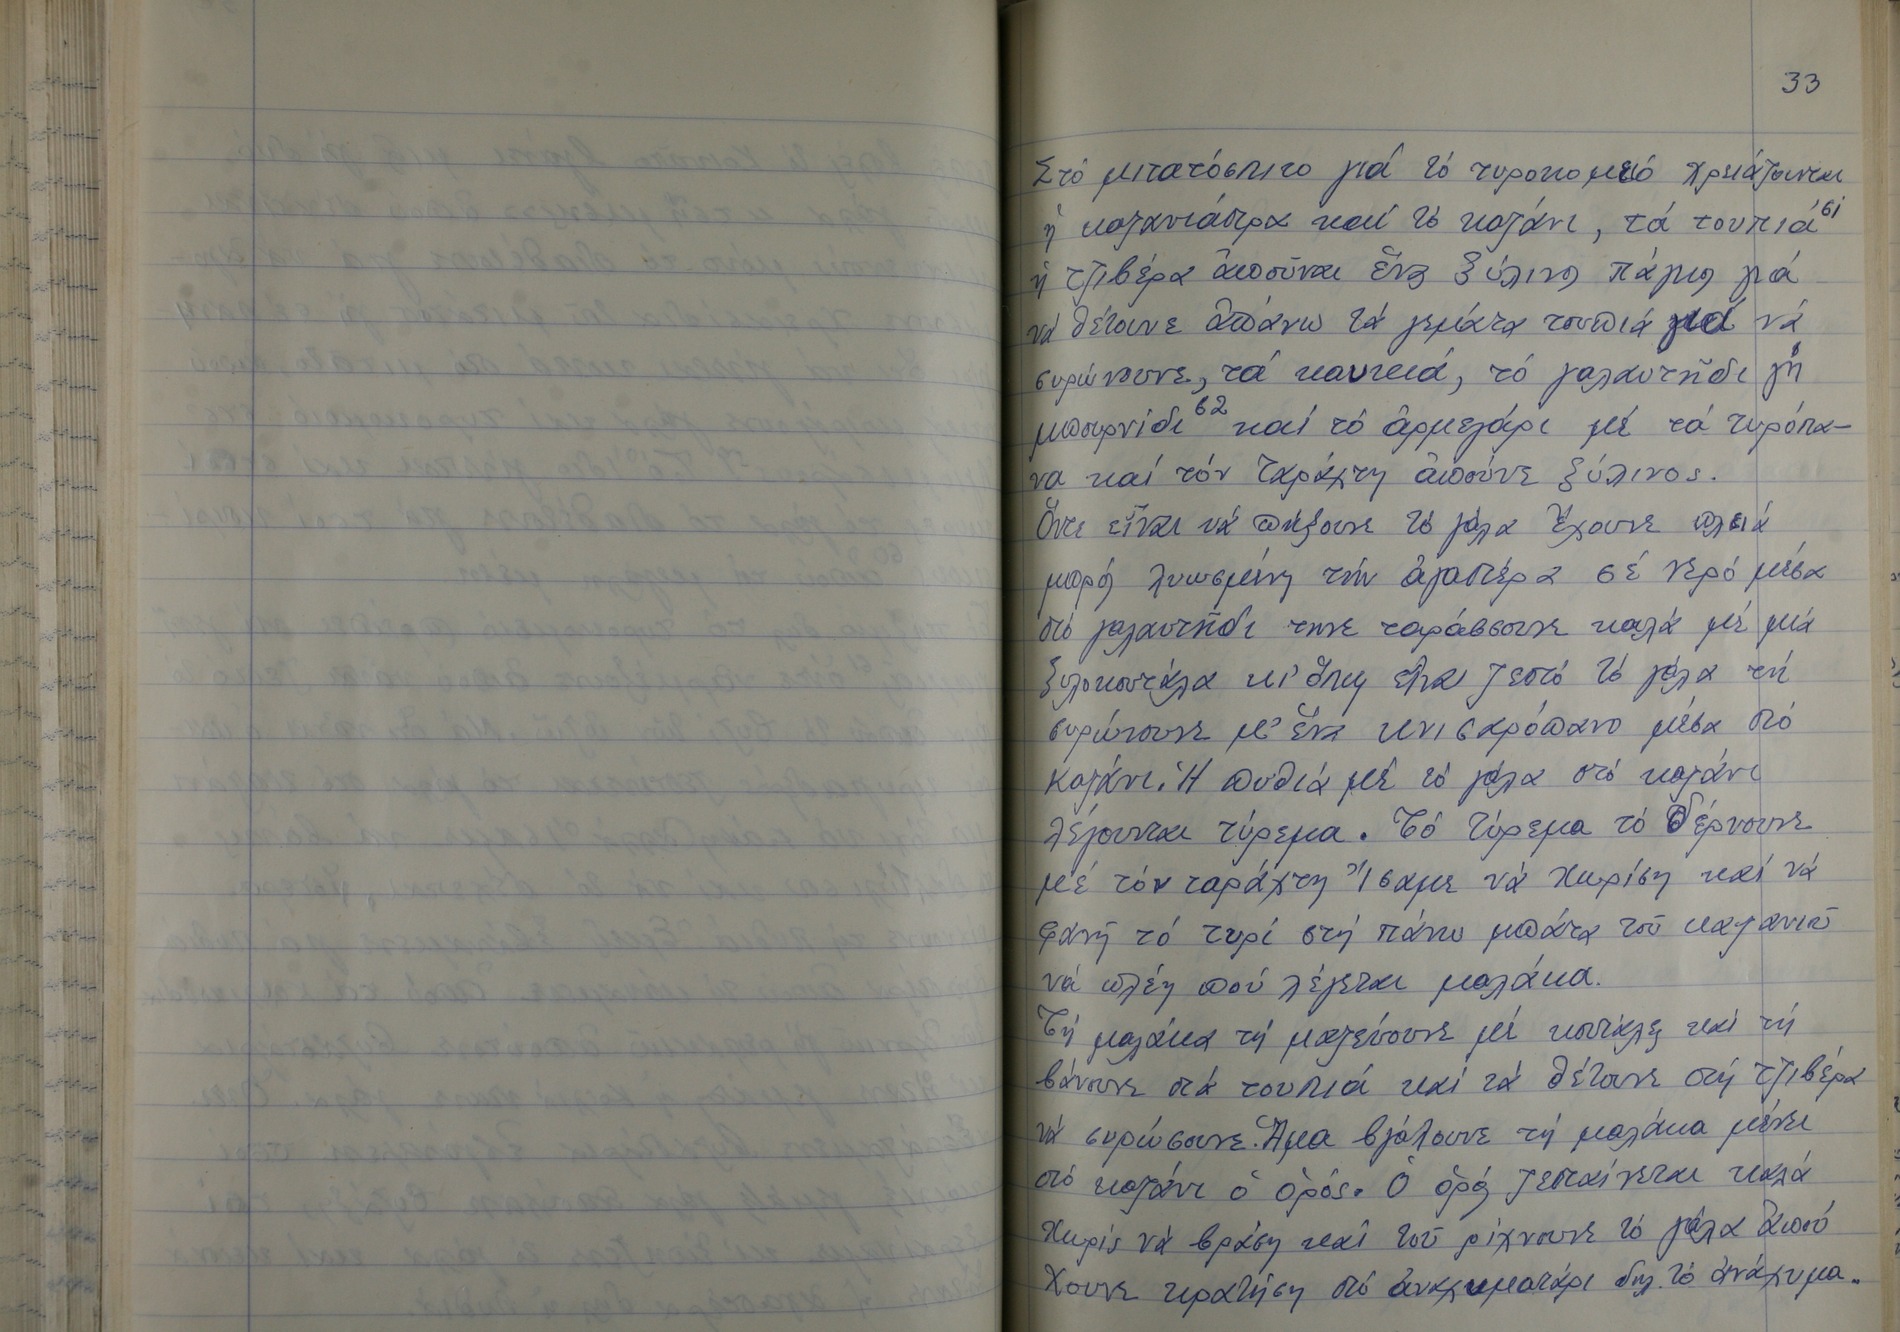 33
Στό μιτατόσπιτο γιά τό τυροκομειό χρειάζονται
ἡ καζανιάστρα καί τό καζάνι, τά τουπιά⁶¹
ἡ τζιβέρα ἀποῦναι ἕνας ξύλινος πάγκος γιά
νά θέτουνε ἀπάνω τά γεμάτα τουπιά γιά νά
συρώνουνε, τά καυκιά, τό γαλαυτῆδι γῆ
μπουρνίδι⁶² καί τό ἀρμεγάρι μέ τά τυρόπα-
να καί τόν ταράχτη ἀπούνε ξύλινος.
Ὅντε εἶναι νά πήξουνε τό γάλα ἔχουνε πλειά
μπρός λυωσμένη τήν ἀγαστέρα σέ νερό μέσα
στό γαλαυτῆδι τηνε ταράσσουνε καλά μέ μιά
ξυλοκουτάλα κι' ὅπως εἶναι ζεστό τό γάλα τή
συρώνουνε μ' ἕνα κνισαρόπανο μέσα στό
καζάνι. Ἡ πυθιά μέ τό γάλα στό καζάνι
λέγουνται τύρεμα. Τό τύρεμα τό δέρνουνε
μέ τόν ταράχτη ἴσαμε νά χωρίση καί νά
φανῆ τό τυρί στή πάνω μπάτα τοῦ καζανιοῦ
νά πλέη πού λέγεται μαλάκα.
Τή μαλάκα τή μαζεύουνε μέ κουτάλες καί τή
βάνουνε στά τουπιά καί τά θέτουνε στή τζιβέρα
νά συρώσουνε. Ἅμα βγάλουνε τή μαλάκα μένει
στό καζάνι ὁ ὀρός. Ὁ ὀρός ζεσταίνεται καλά
χωρίς νά βράση καί τοῦ ρίχνουνε τό γάλα ἀπού
χουνε κρατήση στό ἀναχυματάρι δηλ. τό ἀνάχυμα.